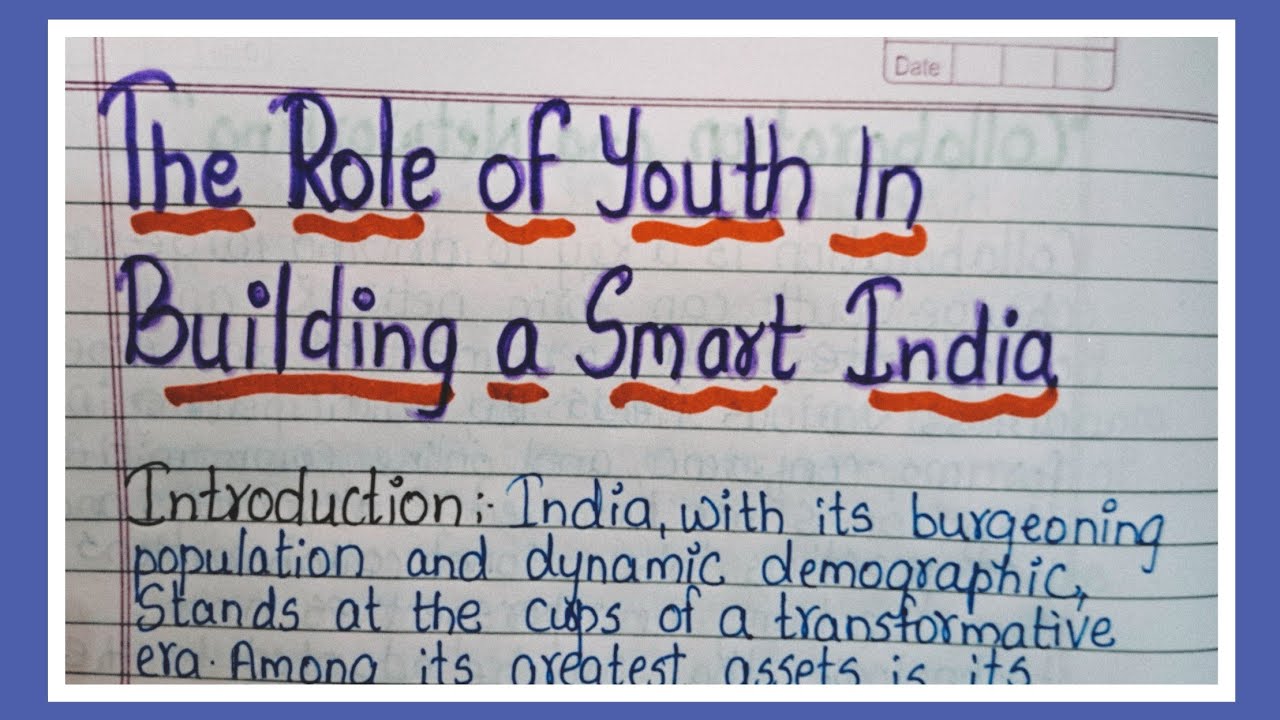 Date
The Role of Youth In
Building a Smart India
Introduction:- India, with its burgeoning
population and dynamic demographic,
Stands at the cups of a transformative
era. Among its greatest assets is its